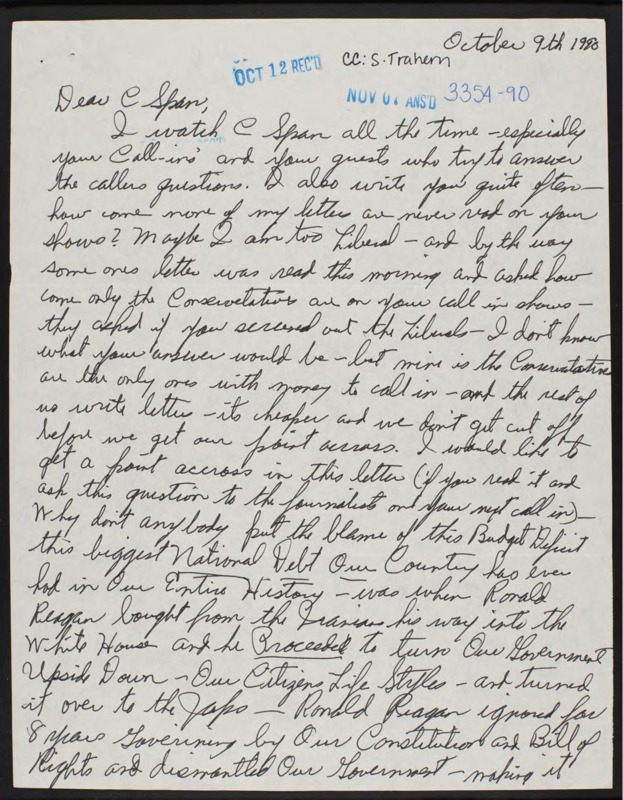 October 9th 1990
OCT 12 REC'D
CC: S. Trahern
NOV 01 ANS'D 3354-90
Dear C Span,
I watch C Span all the time - especially
your Call-ins and your guests who try to answer
the callers questions. I also write you quite often -
how come more of my letters are never read on your
shows? Maybe I am too Liberal - and by the way
some ones letter was read this morning and asked how
come only the Conservatatives are on your call in shows -
they asked if you screened out the Liberals - I don't know
what your answer would be - but mine is the Conservatatives
are the only ones with money to call in - and the rest of
us write letters - its cheaper and we don't get cut off
before we get our point across. I would like to
get a point accross in this letter (if you read it and
ask this question to the journalists on your next call in) -
Why don't anybody put the blame of this Budget Deficit
this biggest National Debt Our Country has ever
had in Our Entire History - was when Ronald
Reagan bought from the Iranians his way into the
White House and he Proceeded to turn Our Government
Upside Down - Our Citizens Life Styles - and turned
it over to the Japs - Ronald Reagan ignored for
8 years Governing by Our Constitution and Bill of
Rights and dismantled Our Government - making it